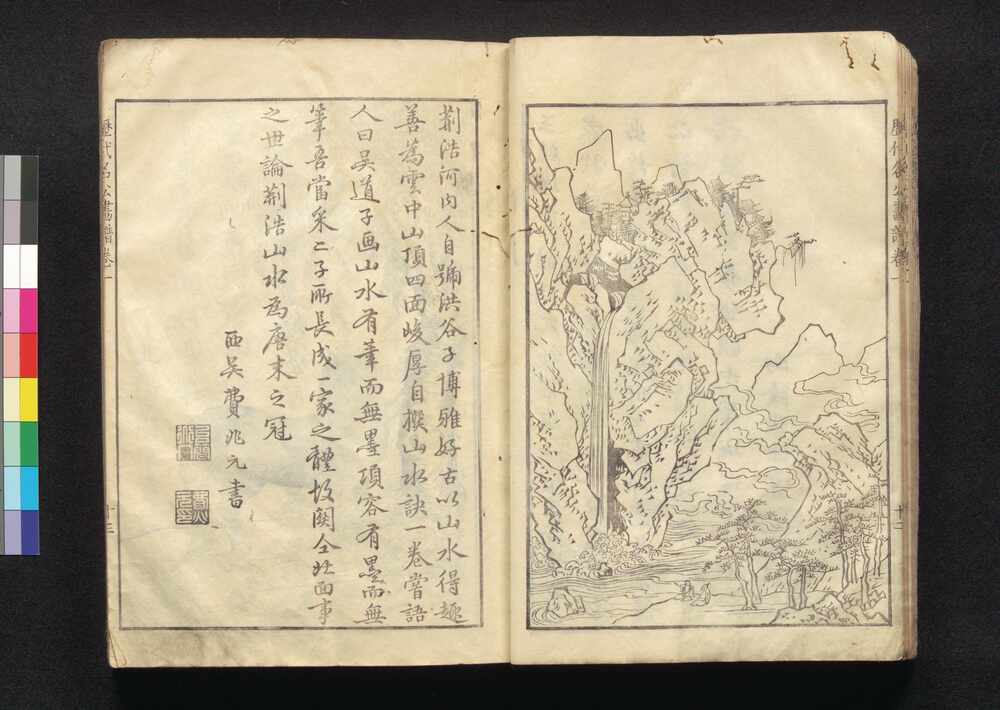 歷代名公畫譜卷一
荆浩河内人自號洪谷子博雅好古以山水得趣
善為雲中山頂四面峻厚自撰山水訣一卷嘗語
人曰吳道子画山水有筆而無墨項容有墨而無
筆吾當采二子所長成一家之體故関仝北面事
之世論荆浩山水為唐末之冠
西吳費兆元書
歷代名公畫譜卷一